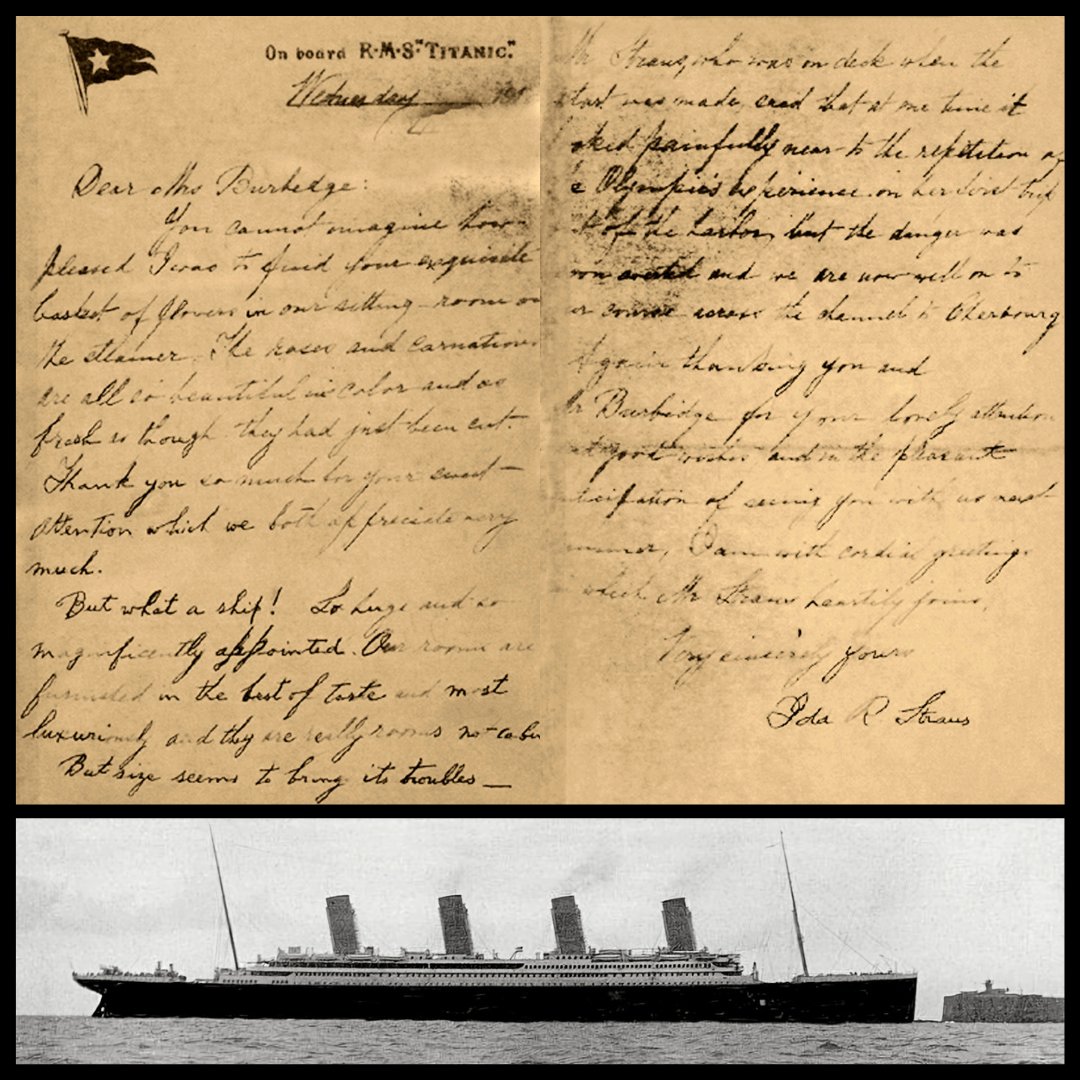 On board R·M·S "TITANIC."
Wednesday 191
Dear Mrs Burbidge:
You cannot imagine how
pleased I was to find your exquisite
basket of flowers in our sitting-room on
the steamer. The roses and carnations
are all so beautiful in color and as
fresh as though they had just been cut.
Thank you so much for your sweet
attention which we both appreciate very
much.
But what a ship! So huge and so
magnificently appointed. Our rooms are
furnished in the best of taste and most
luxuriously and they are really rooms not
But size seems to bring its troubles —
Mr Straus, who was on deck when the
start was made, said that at one time it
painfully near to the repetition of
Olympic's experience on her first trip
of the harbor, but the danger was
averted and we are now well on to
course across the channel to Cherbourg
Again thanking you and
Mr Burbidge for your lovely attention
good wishes and in the pleasant
of seeing you with us next
I am with cordial greetings
in which Mr Straus heartily joins,
Very sincerely yours
Ida R Straus